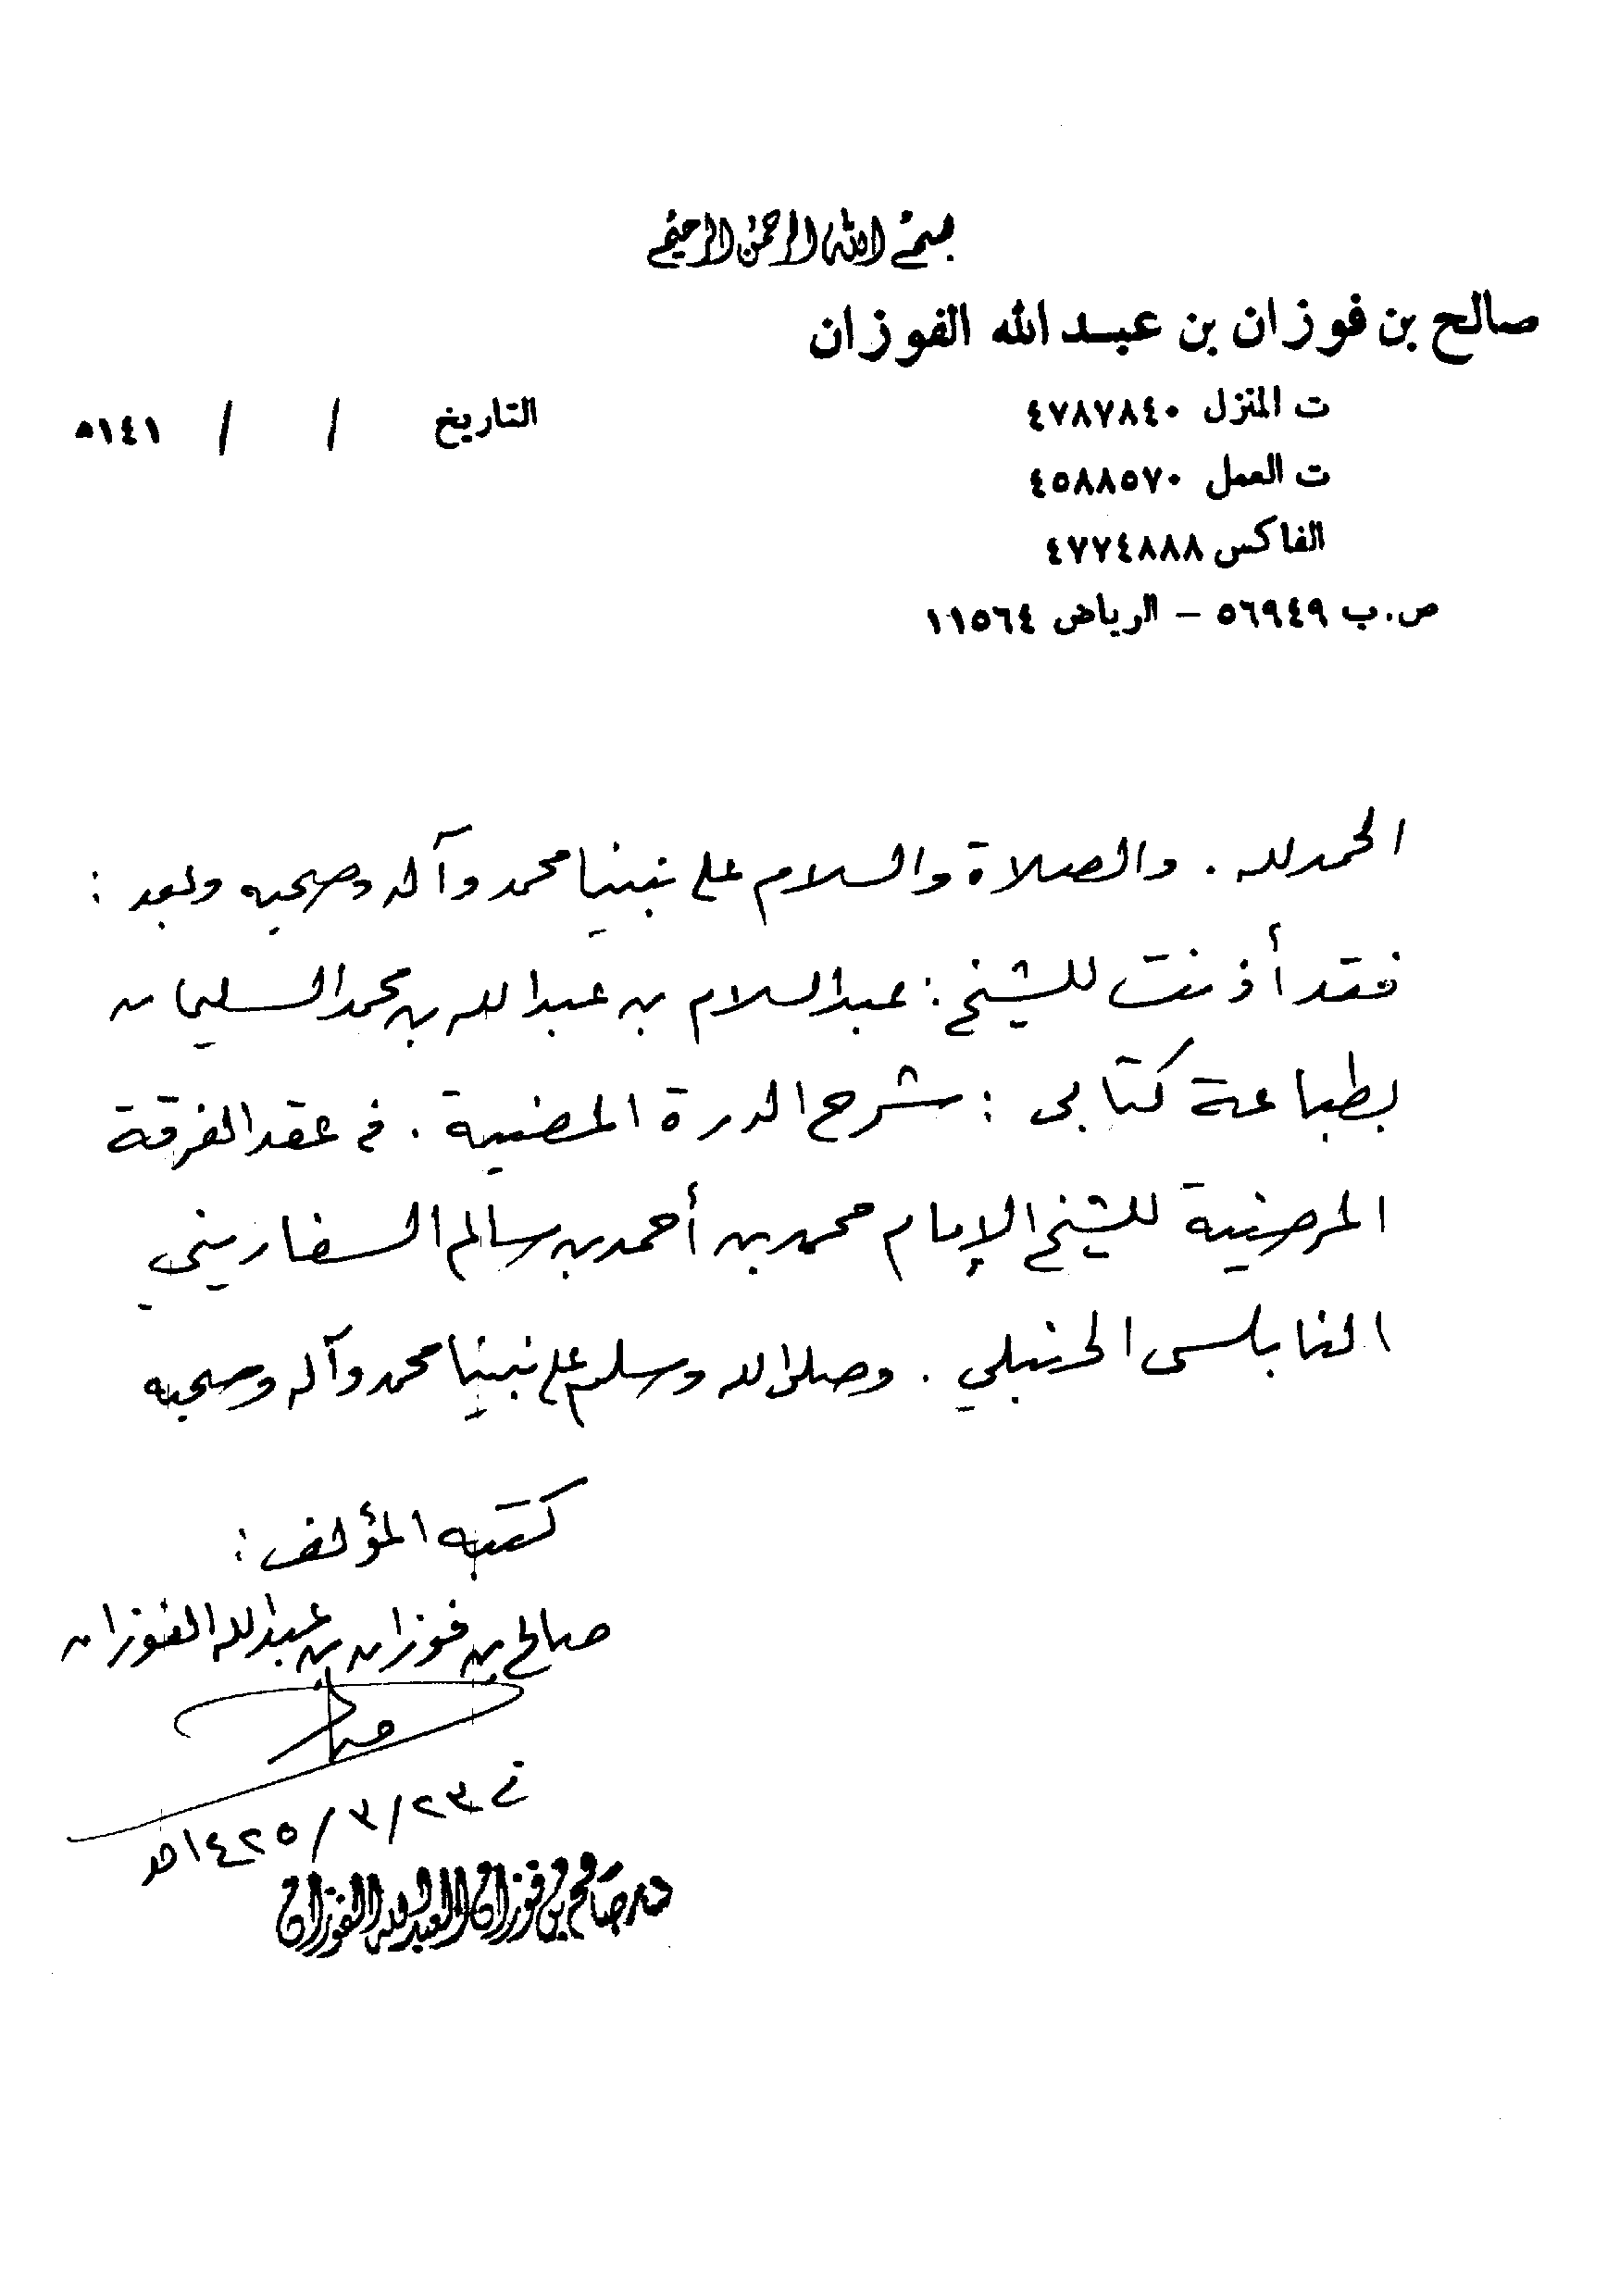 بسم الله الرحمن الرحيم
صالح بن فوزان بن عبد الله الفوزان
ت المنزل ٤٧٨٧٨٤٠
التاريخ / / ١٤١ه
ت العمل ٤٥٨٨٥٧٠
الفاكس ٤٧٧٤٨٨٨
ص.ب ٥٦٩٤٩ – الرياض ١١٥٦٤
الحمد لله . والصلاة والسلام على نبينا محمد وآله وصحبه وبعد :
فقد أذنت للشيخ : عبد السلام بن عبد الله بن محمد السليمان
بطباعة كتابي : شرح الدرة المضية . في عقد الفرقة
المرضية للشيخ الإمام محمد بن أحمد بن سالم السفاريني
النابلسي الحنبلي . وصلى الله وسلم على نبينا محمد وآله وصحبه
كتبه المؤلف :
صالح بن فوزان بن عبد الله الفوزان
في ٢٣/٣/١٤٢٥هـ
صالح بن فوزان العبد الله الفوزان